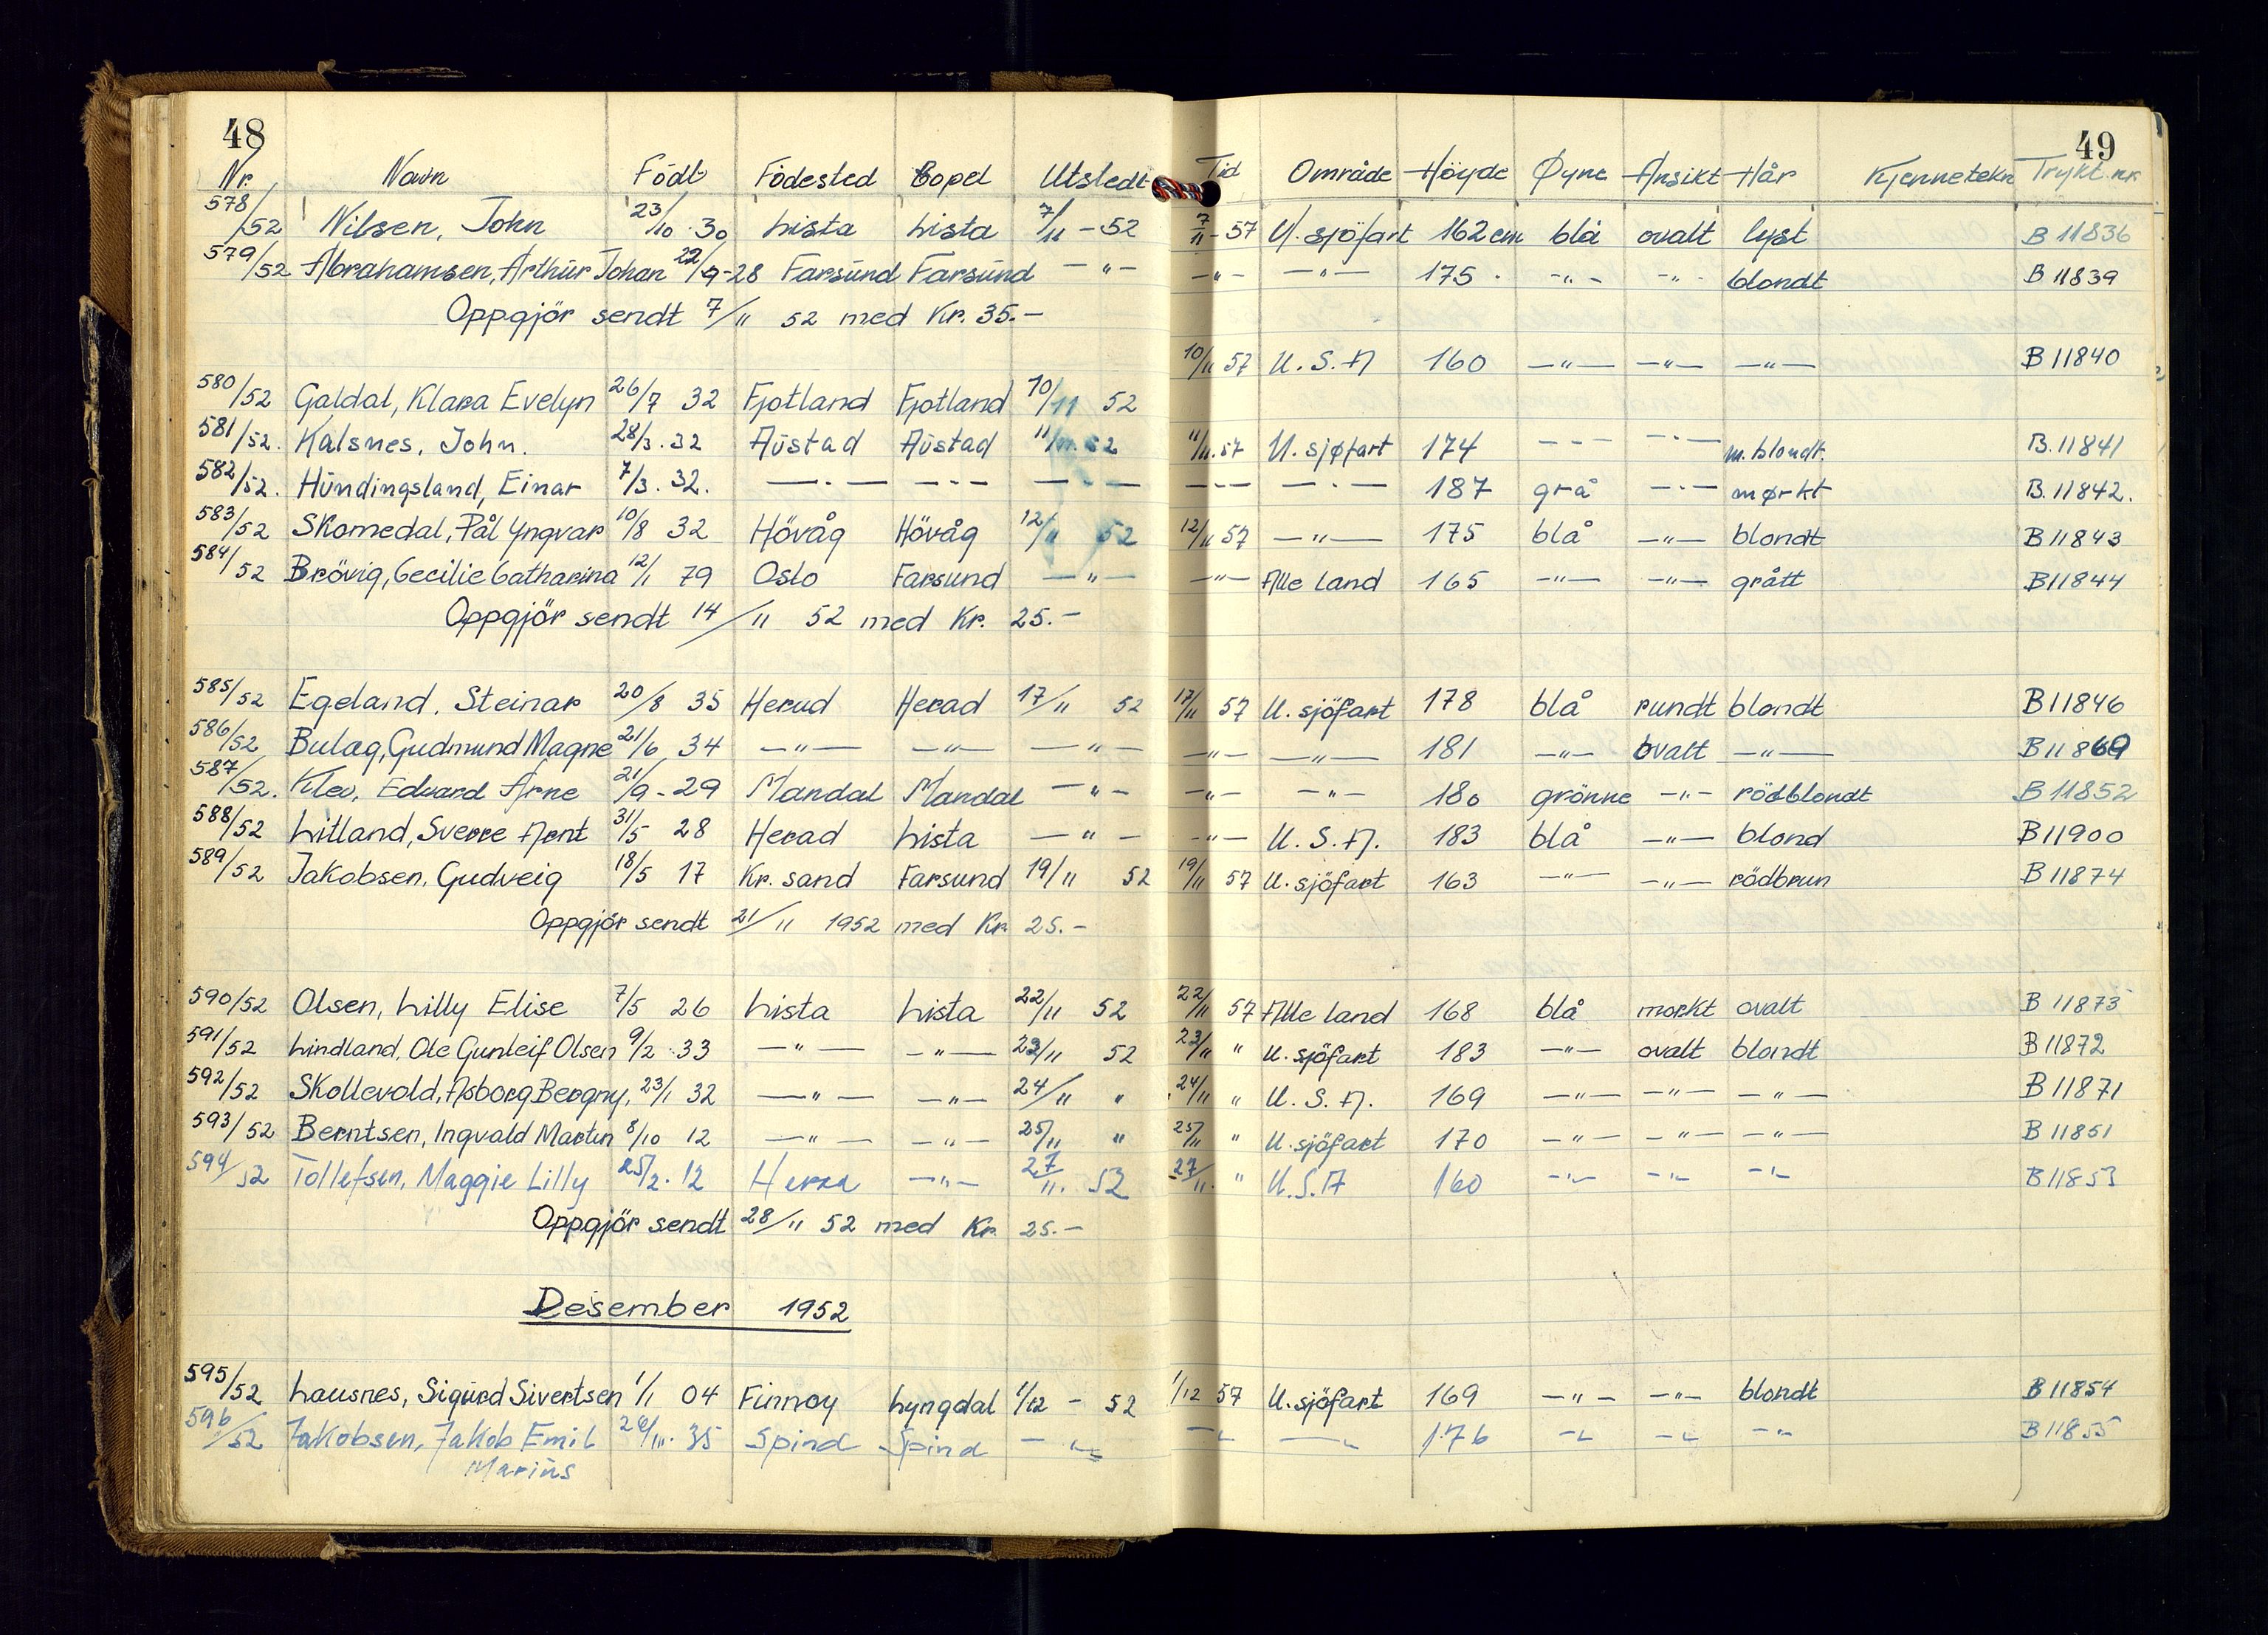 48
49
Nr. Navn Födt Födested Bopel Utstedt Tid Område Höyde Øyne Ansikt Hår Kjennetekn Trykt nr.
578/52 Nilsen, John 23/10 30 Lista Lista 7/11 - 52 7/11 - 57 U. sjöfart 162 cm blå ovalt lyst B 11836
579/52 Abrahamsen, Arthur Johan 22/9-28 Farsund Farsund —"— —"— —"— 175 - —"— —"— blondt B 11839
Oppgjör sendt 7/11 52 med Kr. 35.-
580/52 Galdal, Klara Evelyn 26/7 32 Fjotland Fjotland 10/11 52 10/11 57 U.S.A 160 —"— —"— —"— B 11840
581/52. Kalsnes, John. 28/3.32 Austad Austad 11/11.52 11/11.57 U. sjøfart 174 — - — — - — m. blondt. B.11841
582/52. Hundingsland, Einar 7/3.32. — - — — - — — - — — - — — - — 187 grå — - — mørkt B.11842.
583/52 Skomedal, Pål Yngvar 10/8 32 Hövåg Hövåg 12/11 52 12/11 57 —"— 175 blå —"— blondt B 11843
584/52 Brövig, Cecilie Catharina 12/1 79 Oslo Farsund —"— —"— Alle land 165 —"— —"— grått B11844
Oppgjör sendt 14/11 52 med Kr. 25.-
585/52 Egeland, Steinar 20/8 35 Herad Herad 17/11 52 17/11 57 U. sjöfart 178 blå rundt blondt B11846
586/52 Bulag, Gudmund Magne 21/6 34 —"— —"— —"— —"— —"— 181 —"— ovalt —"— B11869
587/52. Klev, Edvard Arne 21/9-29 Mandal Mandal —"— —"— —"— 180 grönne —"— rödblondt B 11852
588/52 Litland, Sverre Arnt 31/5 28 Herad Lista —"— —"— U.S.A. 183 blå —"— blond B11900
589/52 Jakobsen, Gudveig 18/5 17 Kr. sand Farsund 19/11 52 19/11 57 U. sjöfart 163 —"— —"— rödbrun B 11874
Oppgjör sendt 21/11 1952 med Kr. 25.-
590/52 Olsen, Lilly Elise 7/5 26 Lista Lista 22/11 52 22/11 57 Alle land 168 blå morkt ovalt B 11873
591/52 Lindland, Ole Gunleif Olsen 9/2 33 —"— —"— 23/11 52 23/11 " U. sjöfart 183 —"— ovalt blondt B 11872
592/52 Skollevold, Asborg Bergny, 23/1 32 —"— —"— 24/11 " 24/11 " U.S.A. 169 —"— —"— —"— B 11871
593/52 Berntsen, Ingvald Martin 8/10 12 —"— —"— 25/11 " 25/11 " U. sjöfart 170 —"— —"— —"— B 11851
594/52 Tollefsen, Maggie Lilly 25/2.12 Herra —"— 27/11. 52 27/11. " U.S.A 160 —"— —"— —"— B 11853
Oppgjör sendt 28/11 52 med Kr. 25.-
Desember 1952
595/52 Lausnes, Sigurd Sivertsen 1/1 04 Finnoy Lyngdal 1/12 - 52 1/12 57 U. sjöfart 169 —"— —"— blondt B 11854
596/52 Jakobsen, Jakob Emil 35 Spind Spind —"— —"— —"— 176 —"— —"— —"— B 11855
Marius